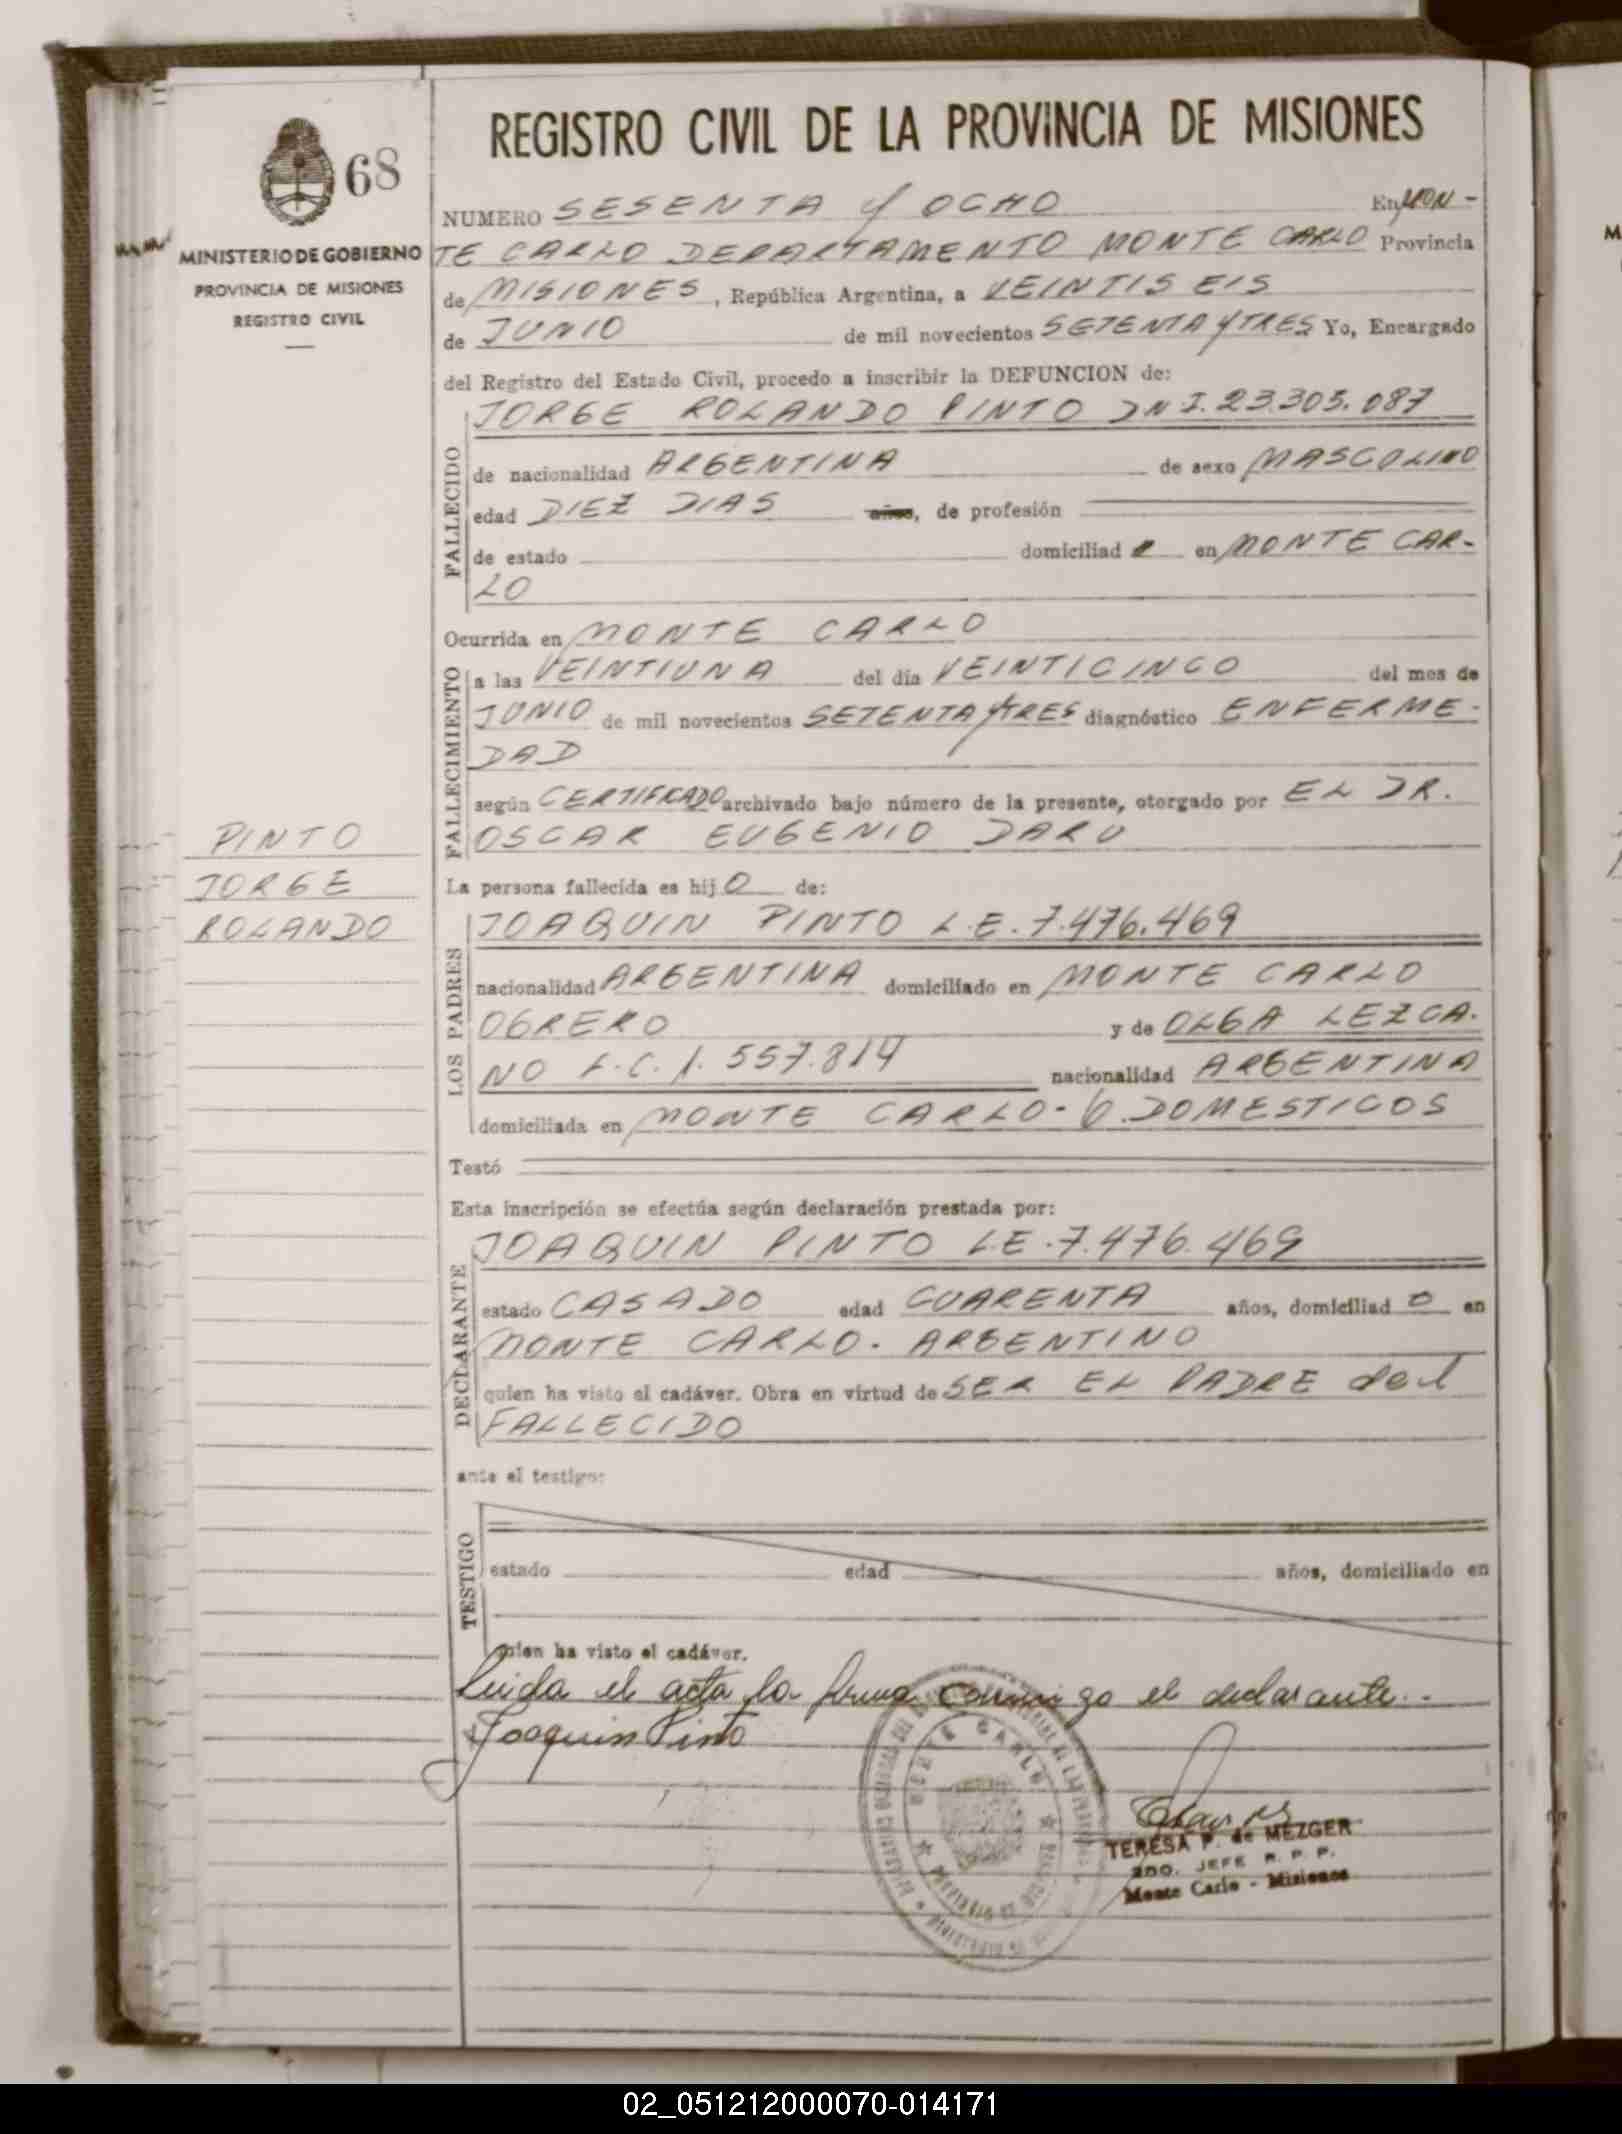 REGISTRO CIVIL DE LA PROVINCIA DE MISIONES
68
MINISTERIO DE GOBIERNO
PROVINCIA DE MISIONES
REGISTRO CIVIL
NUMERO SESENTA Y OCHO En MON-
TE CARLO DEPARTAMENTO MONTE CARLO Provincia
de MISIONES, República Argentina, a VEINTISEIS
de JUNIO de mil novecientos SETENTA Y TRES Yo, Encargado
del Registro del Estado Civil, procedo a inscribir la DEFUNCION de:
JORGE ROLANDO PINTO DNI.23.305.087
FALLECIDO
de nacionalidad ARGENTINA de sexo MASCULINO
edad DIEZ DIAS años, de profesión
de estado domiciliad o en MONTE CAR-
LO
Ocurrida en MONTE CARLO
FALLECIMIENTO
a las VEINTIUNA del día VEINTICINCO del mes de
JUNIO de mil novecientos SETENTA Y TRES diagnóstico ENFERME-
DAD
según CERTIFICADO archivado bajo número de la presente, otorgado por EL DR.
OSCAR EUGENIO DARU
PINTO
JORGE
ROLANDO
La persona fallecida es hij O de:
LOS PADRES
JOAQUIN PINTO L.E.7.476.469
nacionalidad ARGENTINA domiciliado en MONTE CARLO
OBRERO y de OLGA LEZCA-
NO L.C.1.557.814 nacionalidad ARGENTINA
domiciliada en MONTE CARLO- Q.DOMESTICOS
Testó
Esta inscripción se efectúa según declaración prestada por:
DECLARANTE
JOAQUIN PINTO L.E.7.476.469
estado CASADO edad CUARENTA años, domiciliad O en
MONTE CARLO. ARGENTINO
quien ha visto el cadáver. Obra en virtud de SER EL PADRE del
FALLECIDO
ante el testigo:
TESTIGO
estado edad años, domiciliado en
quien ha visto el cadáver.
Leida el acta la firma conmigo el declarante.-
Joaquin Pinto
MONTE CARLO
TERESA P. de MEZGER
2DO. JEFE R. P. P.
Monte Carlo - Misiones
02_051212000070-014171